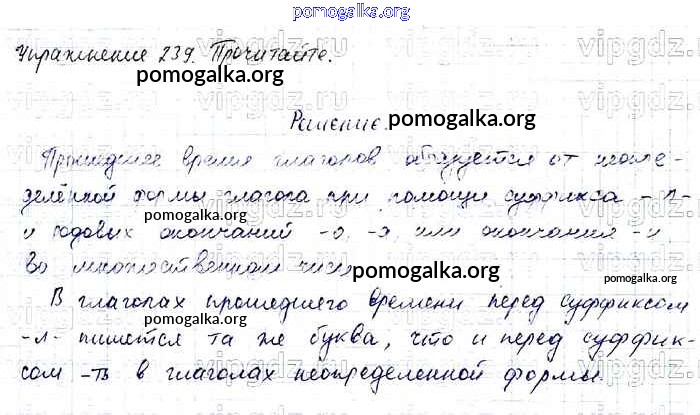 pomogalka.org
Упражнение 239. Прочитайте.
pomogalka.org
Решение.
pomogalka.org
Прошедшее время глаголов образуется от неопре-
делённой формы глагола при помощи суффикса -л-
pomogalka.org
и родовых окончаний -о, -а, или окончания -и
во множественном числе
pomogalka.org
В глаголах прошедшего времени перед суффиксом
pomogalka.org
-л- пишется та же буква, что и перед суффик-
сом -ть в глаголах неопределенной формы.
pomogalka.org
vipgdz.ru